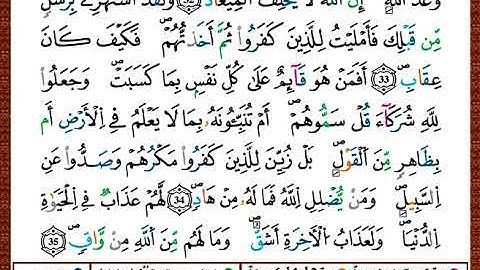 وَعْدُ اللَّهِ ۚ إِنَّ اللَّهَ لَا يُخْلِفُ الْمِيعَادَ وَلَقَدِ اسْتُهْزِئَ بِرُسُلٍ
مِّن قَبْلِكَ فَأَمْلَيْتُ لِلَّذِينَ كَفَرُوا ثُمَّ أَخَذتُّهُمْ فَكَيْفَ كَانَ
عِقَابِ 33 أَفَمَنْ هُوَ قَآئِمٌ عَلَىٰ كُلِّ نَفْسٍ بِمَا كَسَبَتْ وَجَعَلُوا
لِلَّهِ شُرَكَآءَ قُلْ سَمُّوهُمْ أَمْ تُنَبِّئُونَهُ بِمَا لَا يَعْلَمُ فِي الْأَرْضِ أَم
بِظَاهِرٍ مِّنَ الْقَوْلِ بَلْ زُيِّنَ لِلَّذِينَ كَفَرُوا مَكْرُهُمْ وَصَدُّوا عَنِ
السَّبِيلِ وَمَنْ يُّضْلِلِ اللَّهُ فَمَا لَهُ مِنْ هَادٍ 34 لَّهُمْ عَذَابٌ فِي الْحَيَاةِ
الدُّنْيَا وَلَعَذَابُ الْآخِرَةِ أَشَقُّ وَمَا لَهُم مِّنَ اللَّهِ مِنْ وَّاقٍ 35